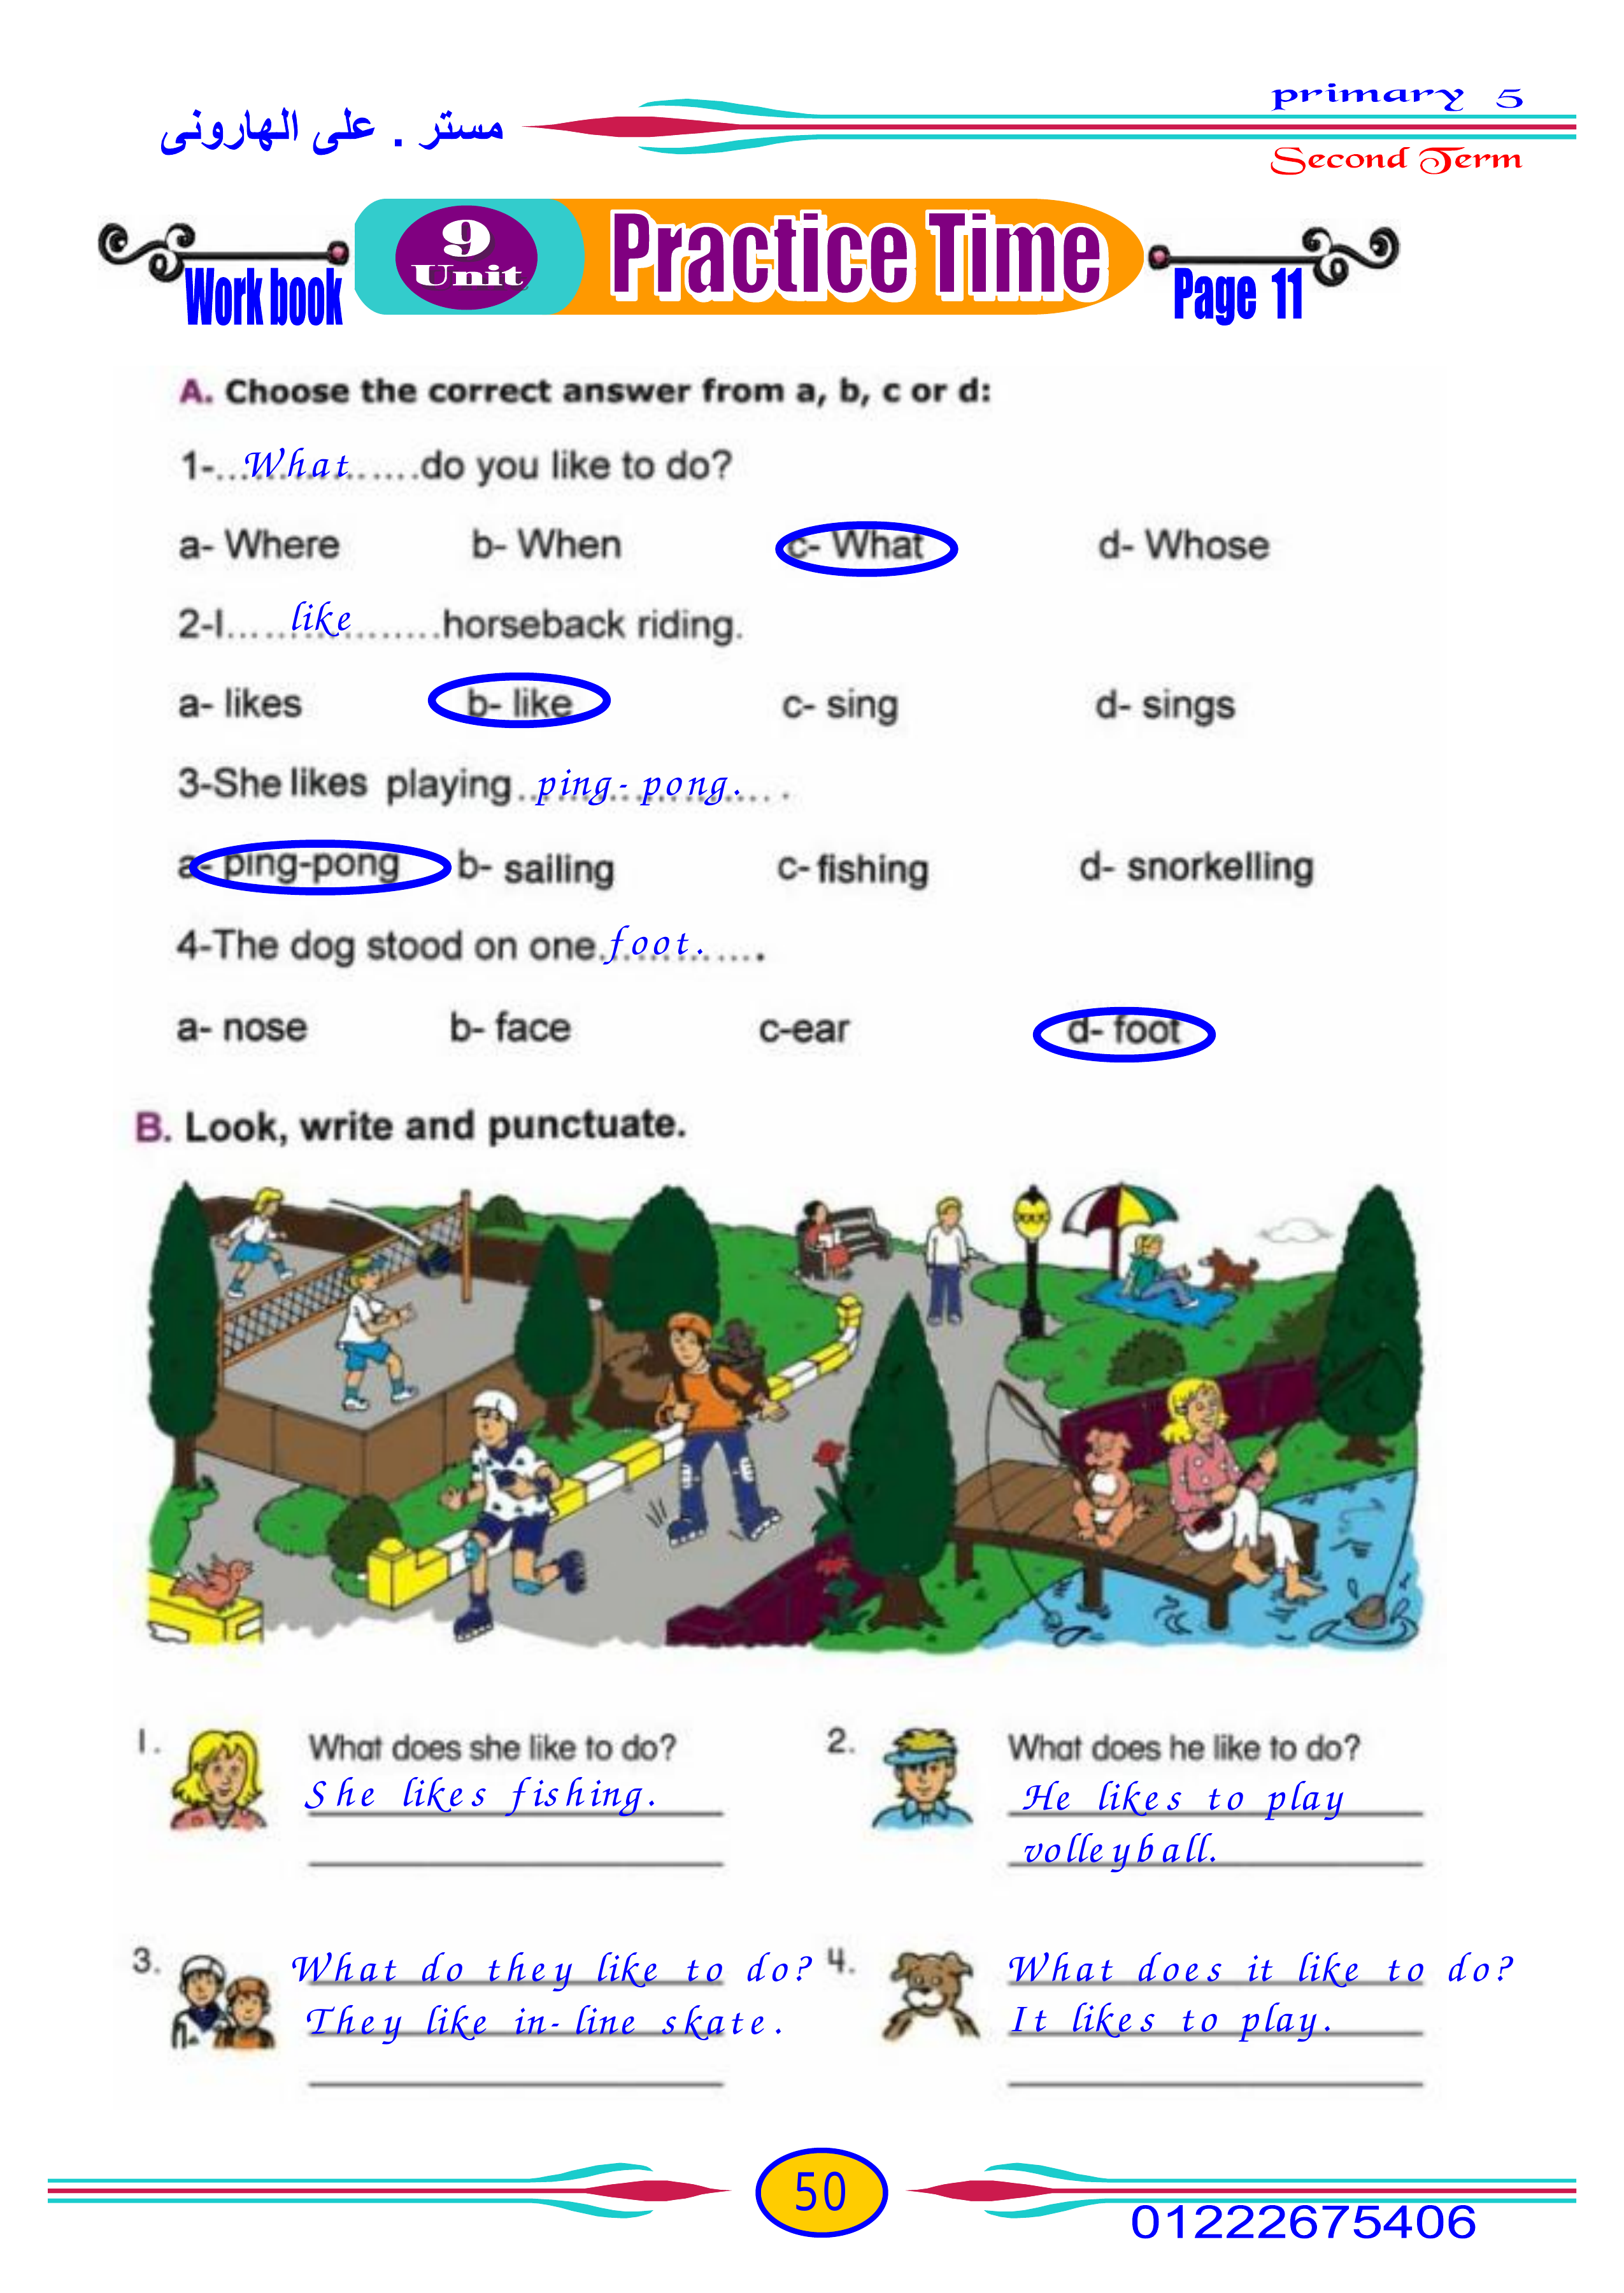 مستر . على الهارونى
primary 5
Second Term
Work book
9
Unit
Practice Time
Page 11
A. Choose the correct answer from a, b, c or d:
1-...What......do you like to do?
a- Where b- When c- What d- Whose
2-I......like.........horseback riding.
a- likes b- like c- sing d- sings
3-She likes playing ..ping-pong..... .
a- ping-pong b- sailing c- fishing d- snorkelling
4-The dog stood on one.foot. .....
a- nose b- face c-ear d- foot
B. Look, write and punctuate.
1. What does she like to do?
She likes fishing.
2. What does he like to do?
He likes to play
volleyball.
3. What do they like to do?
They like in-line skate.
4. What does it like to do?
It likes to play.
50
01222675406